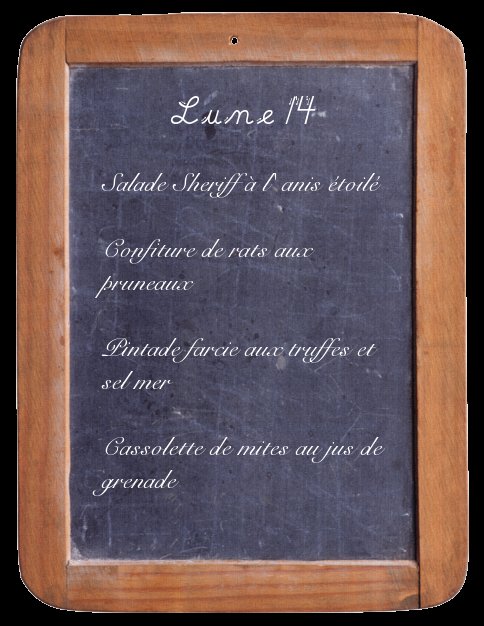 Lune 14
Salade Sheriff à l'anis étoilé
Confiture de rats aux
pruneaux
Pintade farcie aux truffes et
sel mer
Cassolette de mites au jus de
grenade